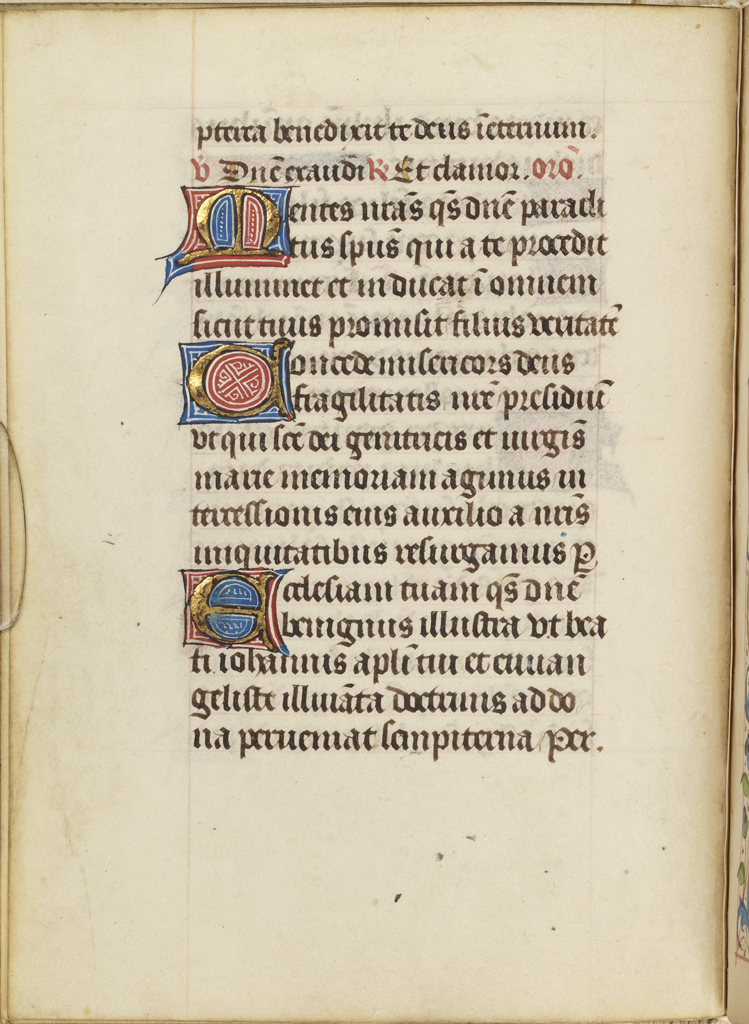 pterea benedixit te deus īeternum.
V Dnē exaudi R Et clamor. orō.
Mentes nrās qs̄ dnē paracli
tus spūs qui a te procedit
illuminet et inducat ī omnem
sicut tuus promisit filius veritatē
Concede misericors deus
fragilitatis nrē presidiū
vt qui scē dei genitricis et uirgīs
marie memoriam agimus in
tercessionis eius auxilio a nrīs
iniquitatibus resurgamus P̲
Ecclesiam tuam qs̄ dnē
benignus illustra vt bea
ti iohannis aplī tui et euuan
geliste illuīata doctrinis ad do
na perueniat sempiterna Per.